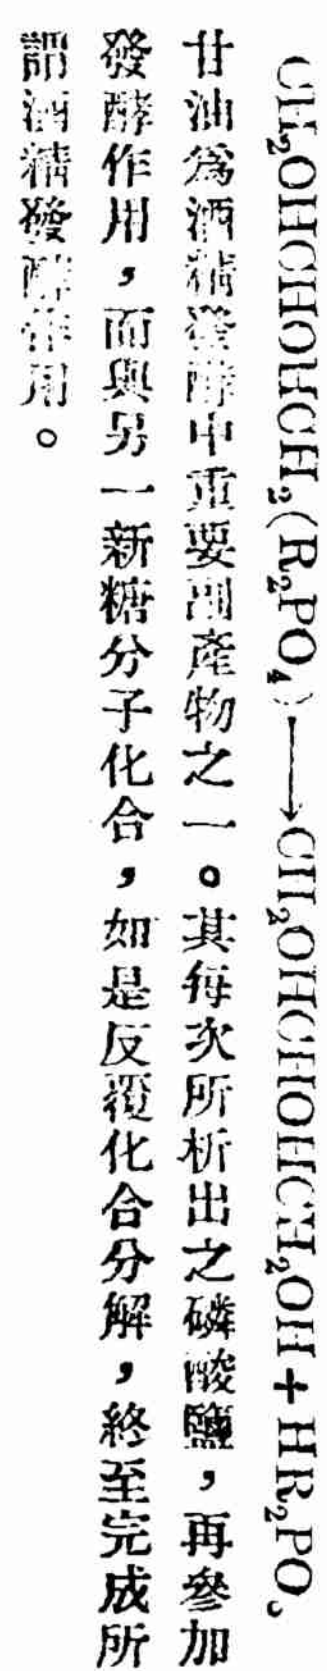 CH₂OHCHOHCH₂(R₂PO₄)⟶CH₂OHCHOHCH₂OH+HR₂PO。
甘油為酒精發酵中重要副產物之一。其每次所析出之磷酸鹽，再參加
發酵作用，而與另一新糖分子化合，如是反覆化合分解，終至完成所
謂酒精發酵作用。